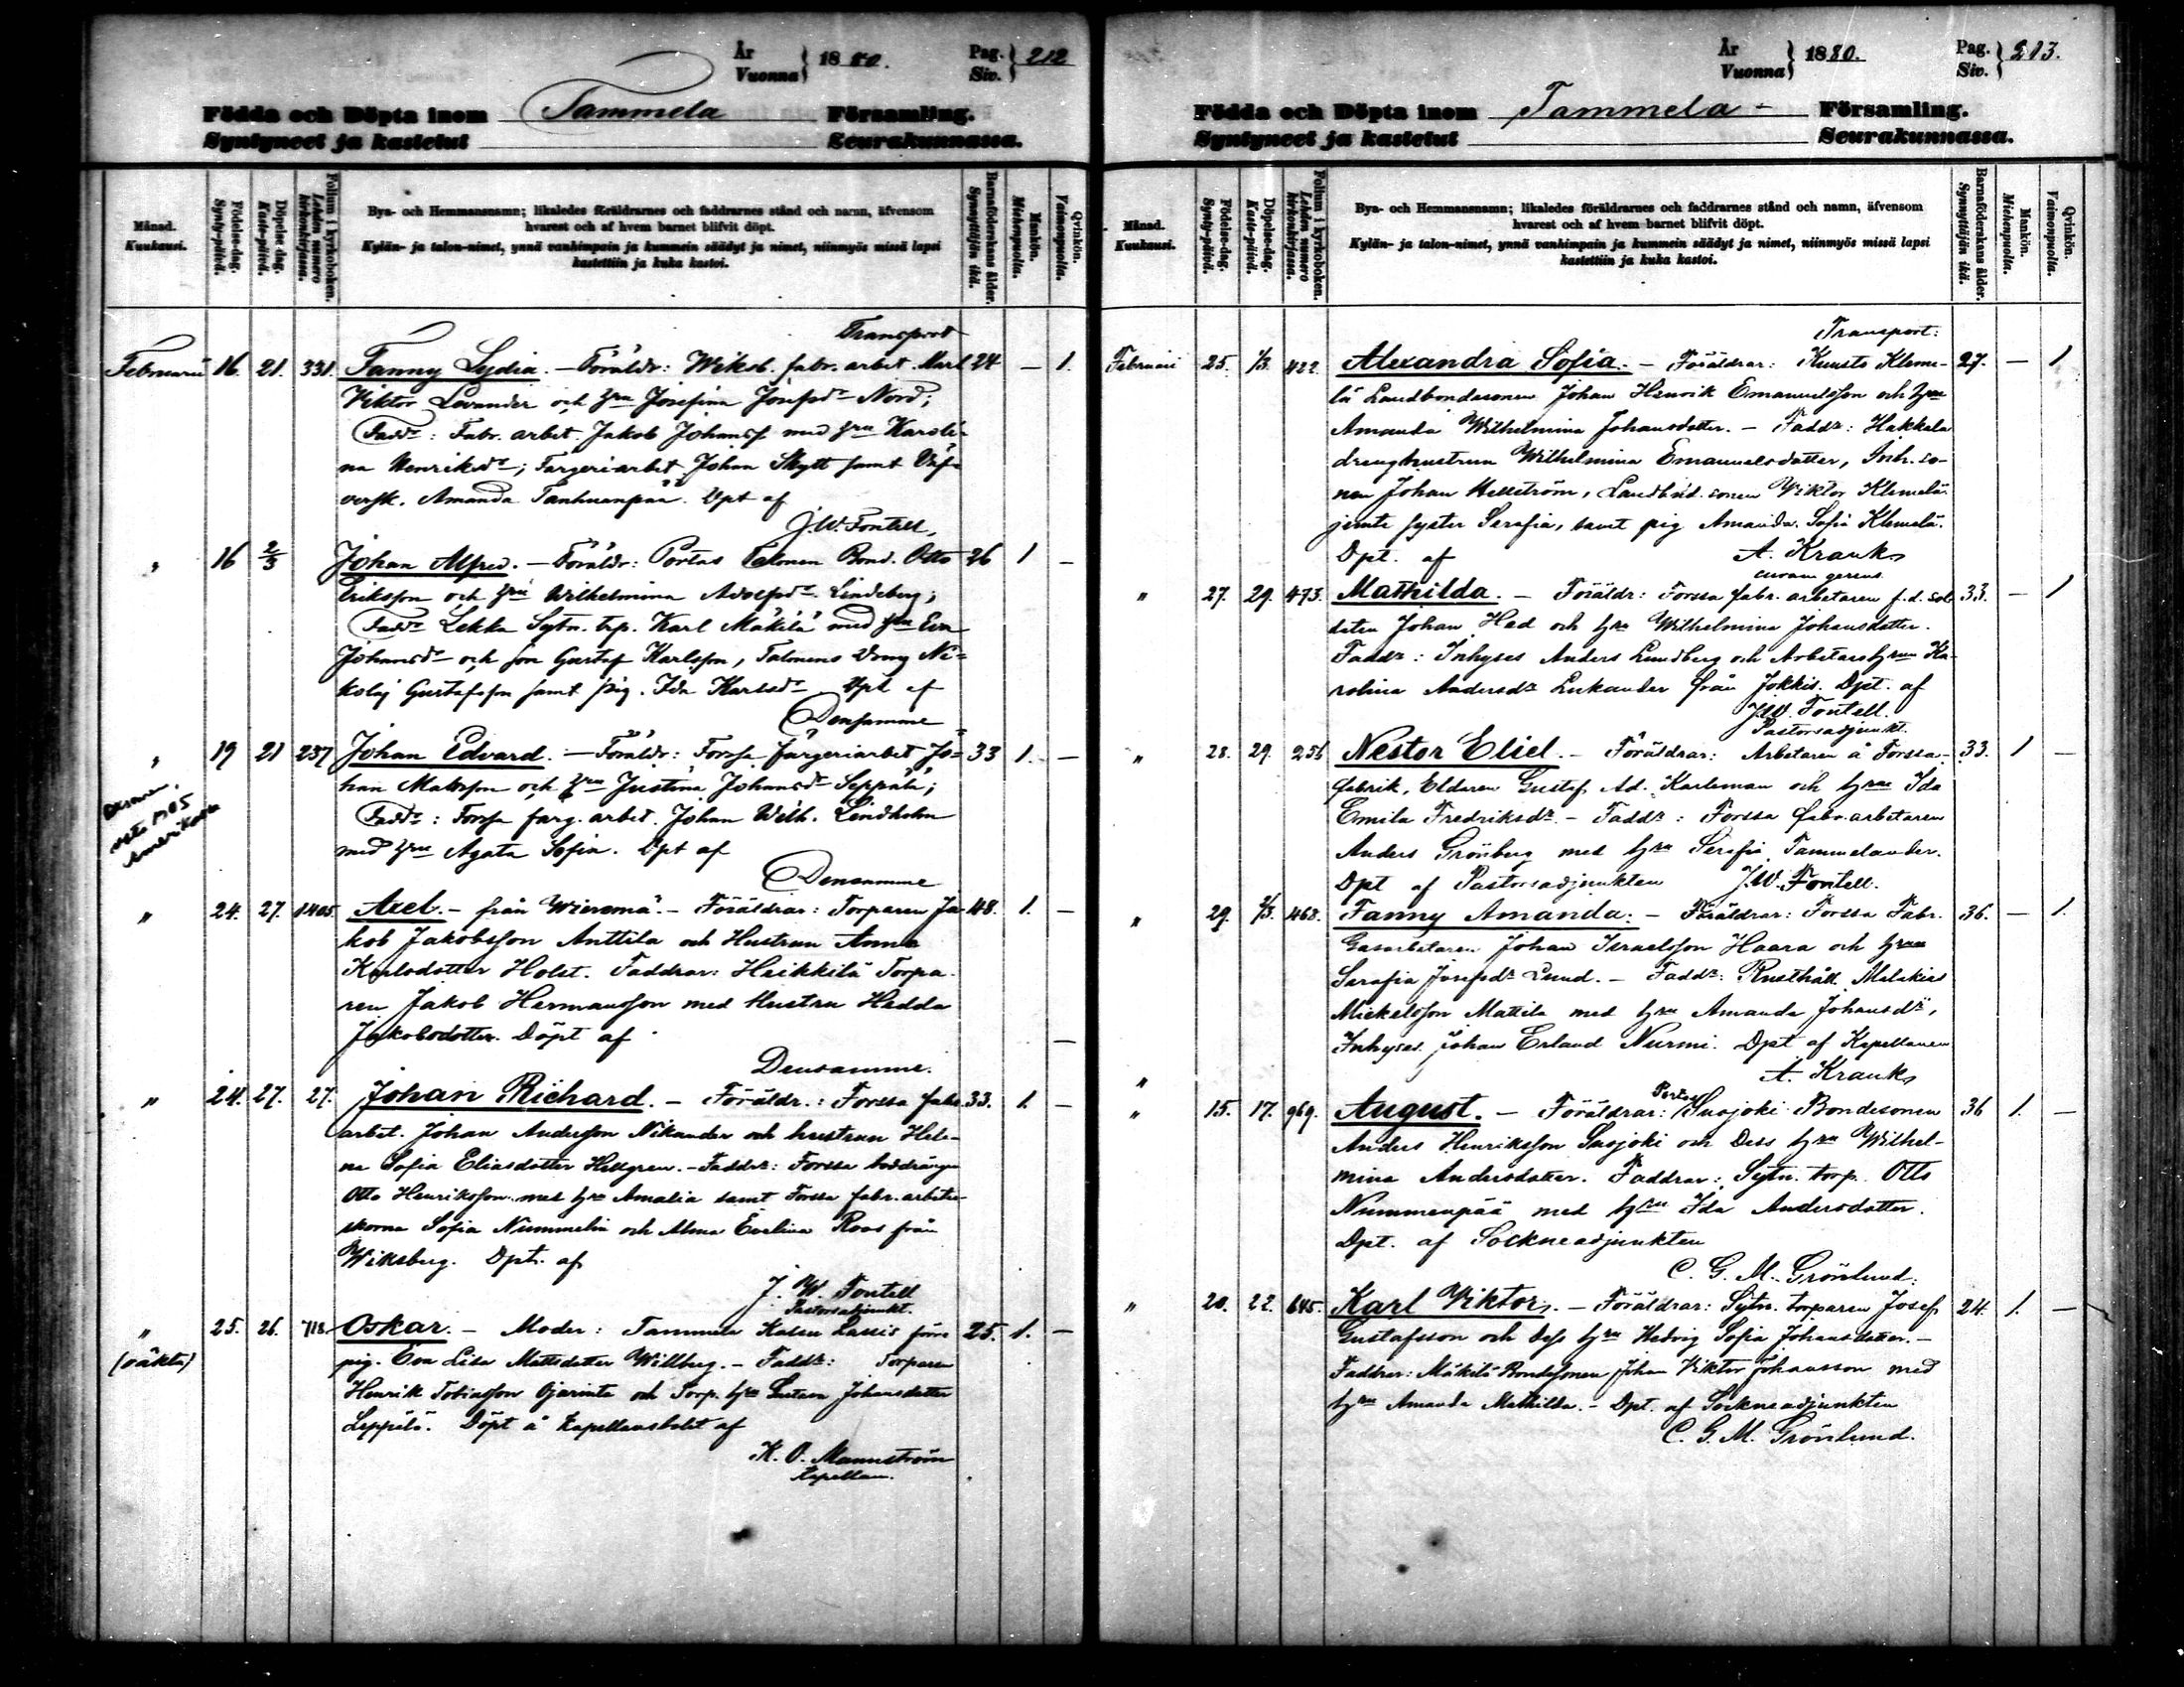 År Vuonna } 1880. Pag. Siv. } 212
Födda och Döpta inom Tammela Församling.
Syntyneet ja kastetut Seurakunnassa.
Månad. Kuukausi.
Födelse-dag. Synty-päivä.
Döpelse-dag. Kaste-päivä.
Folium i kyrkoboken. Lehden numero kirkonkirjassa.
Bya- och Hemmansnamn; likaledes föräldrarnes och faddrarnes stånd och namn, äfvensom
hvarest och af hvem barnet blifvit döpt.
Kylän- ja talon-nimet, ynnä vanhimpain ja kummein säädyt ja nimet, niinmyös missä lapsi
kastettiin ja kuka kastoi.
Barnaföderskans ålder. Synnyttäjän ikä.
Mankön. Miehenpuolta.
Qvinkön. Vaimonpuolta.
Transport
Februarii 16. 21. 331. Fanny Lydia. – Föräldr: Wiksb. fabr. arbet. Karl 24 – 1.
Viktor Levander och hru Josefina Josefsdr Nord;
Faddr: Fabr. arbet. Jakob Johanss. med hru Karoli-
na Henriksdr; Färgeriarbet. Johan Skytt samt Väf-
versk. Amanda Tanhuanpää. Dpt af
J. W. Fontell.
" 16 2/3 Johan Alfred. – Föräldr: Portas Talonen Bond. Otto 26 1 –
Eriksson och hru Wilhelmina Adolfsdr Lindeberg;
Faddr Lekka Sytn. trp. Karl Mäkilä med hru Eva
Johansdr och son Gustaf Karlsson, Talonens dräng Ni-
kolaj Gustafsson samt pig. Ida Karlsdr Dpt af
Densamme
" 19 21 237 Johan Edvard. – Föräldr: Forssa färgeriarbet Jo- 33 1. –
han Matsson och hru Justina Johansdr Seppälä;
Faddr: Forssa färg. arbet. Johan Wilh. Lindholm
med hru Agata Sofia. Dpt af
Densamme
1905
Amerikaan
" 24. 27. 1405. Axel. – från Wieremä. – Föräldrar: Torparen Ja- 48. 1. –
kob Jakobsson Anttila och Hustrun Anna
Karlsdotter Holst. Faddrar: Heikkilä Torpa-
ren Jakob Hermansson med Hustru Hedda
Jakobsdotter. Döpt af
Densamme.
" 24. 27. 27. Johan Richard. – Föräldr.: Forssa fabr. 33. 1. –
arbet. Johan Andersson Nikander och hustrun Hele-
na Sofia Eliasdotter Hellgren. – Faddr: Forssa
Otto Henriksson med hru Amalia samt Forssa fabr. arbeter-
skorna Sofia Nummelin och Alma Evelina Roos från
Wiksberg. Dpt. af
J. W. Fontell
Pastorsadjunkt.
" 25. 26. 718. Oskar. – Moder: Tammela Kaleu Lassis förra 25. 1. –
(oäkta) pig. Eva Lisa Mattsdotter Willberg. – Faddr: Torparen
Henrik Tobiasson Ojarinta och Torp. hru Gustava Johansdotter
Leppälä. Döpt å kapellansbolet af
K. O. Mannström
Kapellan.
År Vuonna } 1880. Pag. Siv. } 213.
Födda och Döpta inom Tammela Församling.
Syntyneet ja kastetut Seurakunnassa.
Månad. Kuukausi.
Födelse-dag. Synty-päivä.
Döpelse-dag. Kaste-päivä.
Folium i kyrkoboken. Lehden numero kirkonkirjassa.
Bya- och Hemmansnamn; likaledes föräldrarnes och faddrarnes stånd och namn, äfvensom
hvarest och af hvem barnet blifvit döpt.
Kylän- ja talon-nimet, ynnä vanhimpain ja kummein säädyt ja nimet, niinmyös missä lapsi
kastettiin ja kuka kastoi.
Barnaföderskans ålder. Synnyttäjän ikä.
Mankön. Miehenpuolta.
Qvinkön. Vaimonpuolta.
Transport:
Februarii 25. 1/3. 422. Alexandra Sofia. – Föräldrar: Kuusto Kleme- 27. – 1
lä Landbondesonen Johan Henrik Emanuelsson och hru
Amanda Wilhelmina Johansdotter. – Faddr: Hakkala
drenghustrun Wilhelmina Emanuelsdotter, Inh. so-
nen Johan Hellström, Landbd. sonen Viktor Klemelä
jemte syster Serafia, samt pig Amanda Sofia Klemelä.
Dpt. af A. Krank
curam gerens.
" 27. 29. 473. Mathilda. – Föräldr: Forssa fabr. arbetaren f. d. sol- 33. – 1
daten Johan Hed och hru Wilhelmina Johansdotter.
Faddr: Inhyses Anders Lundberg och Arbetarehrun Ka-
rolina Andersdr Lukander från Jokkis. Dpt. af
J. W. Fontell.
Pastorsadjunkt.
" 28. 29. 256 Nestor Eliel. – Föräldrar: Arbetaren å Forssa 33. 1 –
fabrik, Eldaren Gustaf Ad. Karleman och hru Ida
Emila Fredriksdr. – Faddr: Forssa fabr. arbetaren
Anders Grönberg med hru Serafia Tammelander.
Dpt af Pastorsadjunkten J. W. Fontell.
" 29. 2/3. 468. Fanny Amanda. – Föräldrar: Forssa Fabr. 36. – 1.
Gasarbetaren Johan Israelsson Haara och hrun
Serafia Josefsdr Lund. – Faddr: Rusthåll. Malakias
Mickelsson Mattila med hru Amanda Johansdr,
Inhyses Johan Erland Nurmi. Dpt af Kapellanen
" A. Krank
" 15. 17. 969. August. – Föräldrar: Portas Susjoki Bondesonen 36 1. –
Anders Henriksson Susjoki och Dess hru Wilhel-
mina Andersdotter. Faddrar: Sytn. torp. Otto
Nummenpää med hru Ida Andersdotter.
Dpt. af Sockneadjunkten
C. G. M. Grönlund.
" 20. 22. 645. Karl Viktor. – Föräldrar: Sytn. torparen Josef 24. 1. –
Gustafsson och dess hru Hedvig Sofia Johansdotter. –
Faddrar: Mäkilä Bondesonen Johan Viktor Johansson med
hru Amanda Mathilda. – Dpt. af Sockneadjunkten
C. G. M. Grönlund.